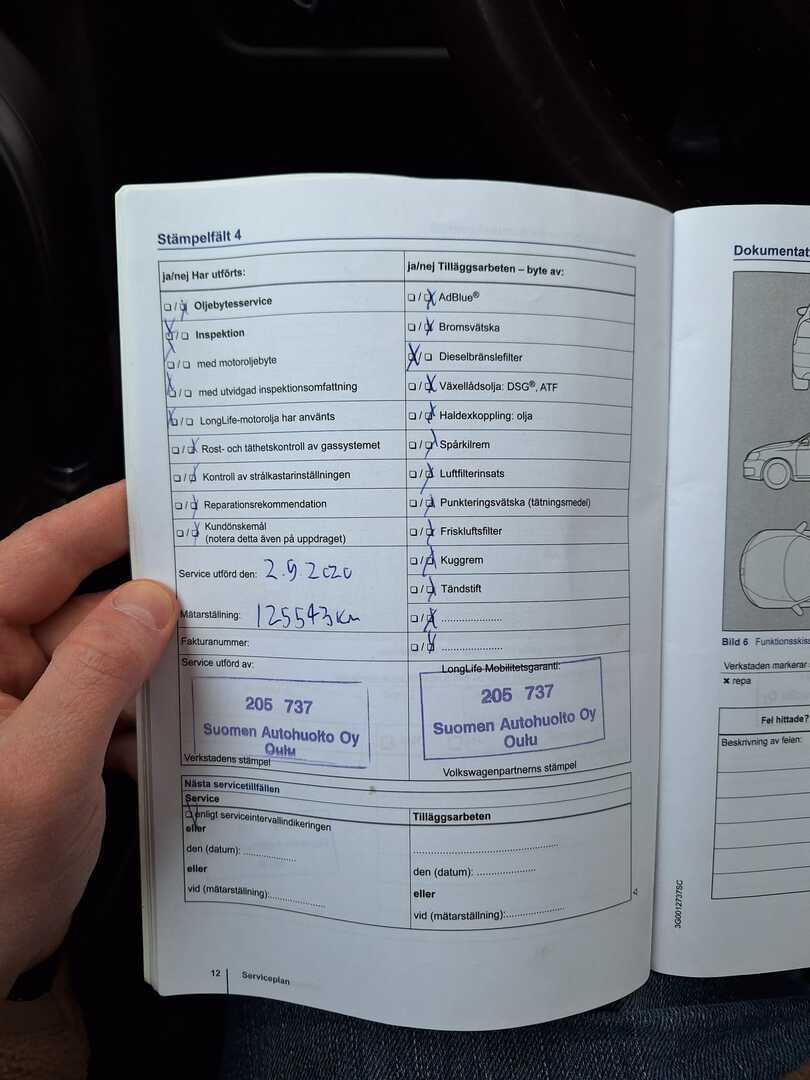 Stämpelfält 4
ja/nej Har utförts:
❏ / ❏ Oljebytesservice
❏ / ❏ Inspektion
❏ / ❏ med motoroljebyte
❏ / ❏ med utvidgad inspektionsomfattning
❏ / ❏ LongLife-motorolja har använts
❏ / ❏ Rost- och täthetskontroll av gassystemet
❏ / ❏ Kontroll av strålkastarinställningen
❏ / ❏ Reparationsrekommendation
❏ / ❏ Kundönskemål
(notera detta även på uppdraget)
Service utförd den: 2.9.2020
Mätarställning: 125543 km
Fakturanummer:
Service utförd av:
205 737
Suomen Autohuolto Oy
Oulu
Verkstadens stämpel
ja/nej Tilläggsarbeten – byte av:
❏ / ❏ AdBlue®
❏ / ❏ Bromsvätska
❏ / ❏ Dieselbränslefilter
❏ / ❏ Växellådsolja: DSG®, ATF
❏ / ❏ Haldexkoppling: olja
❏ / ❏ Spårkilrem
❏ / ❏ Luftfilterinsats
❏ / ❏ Punkteringsvätska (tätningsmedel)
❏ / ❏ Friskluftsfilter
❏ / ❏ Kuggrem
❏ / ❏ Tändstift
❏ / ❏ .....................
❏ / ❏ .....................
LongLife Mobilitetsgaranti:
205 737
Suomen Autohuolto Oy
Oulu
Volkswagenpartnerns stämpel
Nästa servicetillfällen
Service
❏ enligt serviceintervallindikeringen
eller
den (datum): ...................
eller
vid (mätarställning):...................
Tilläggsarbeten
..................................................
den (datum): .....................
eller
vid (mätarställning):.....................
12 Serviceplan
3G0012737SC
Dokumentat
Bild 6 Funktionsskiss
Verkstaden markerar
✖ repa
Fel hittade?
Beskrivning av felen: